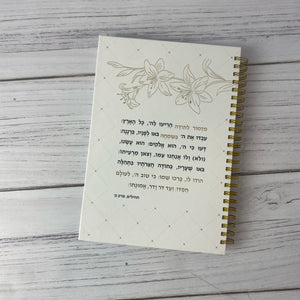 מזמור לתודה הריעו לה', כל הארץ:
עבדו את ה' בשמחה באו לפניו, ברננה:
דעו כי ה', הוא אלקים: הוא עשנו
(ולא) ולו אנחנו עמו, וצאן מרעיתו:
באו שעריו, בתודה חצרתיו בתהלה
הודו לו, ברכו שמו: כי טוב ה', לעולם
חסדו ועד דר ודר, אמונתו:
תהילים, פרק ק'